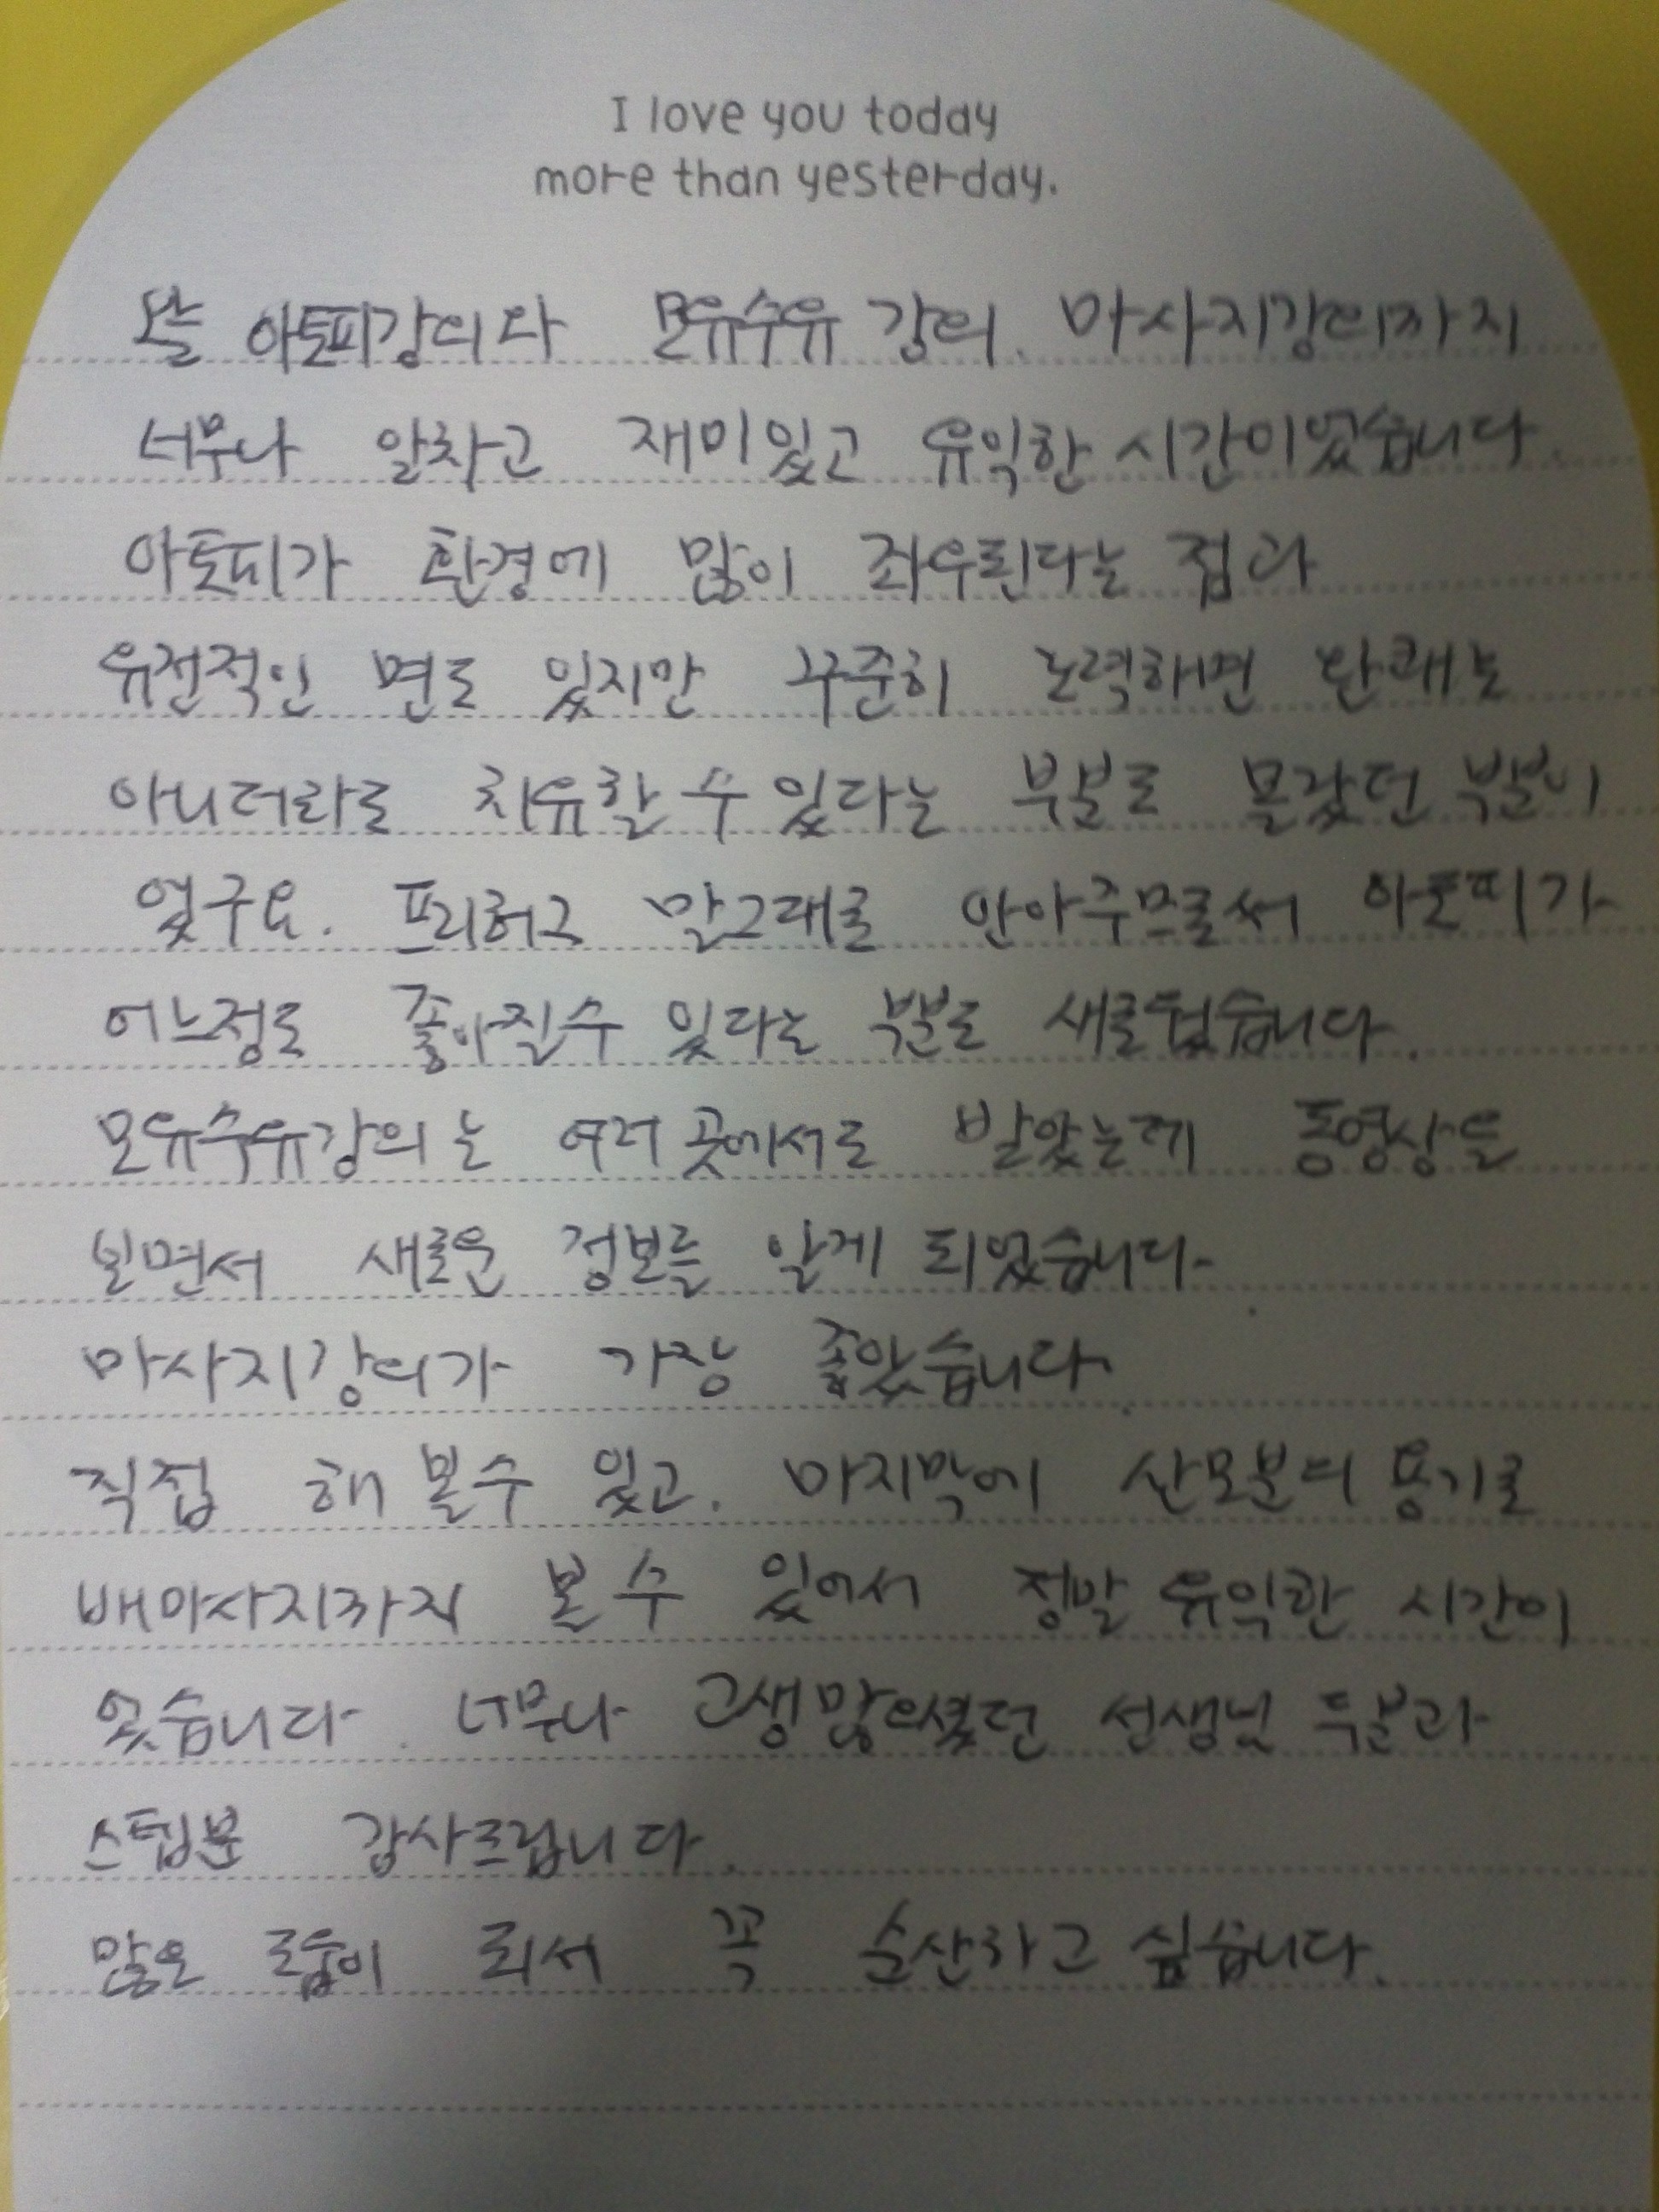 I love you today
more than yesterday.
오늘 아토피강의와 모유수유 강의. 마사지강의까지
너무나 알차고 재미있고 유익한 시간이었습니다.
아토피가 환경에 많이 좌우된다는 점과
유전적인 면도 있지만 꾸준히 노력하면 완쾌는
아니더라도 치유할 수 있다는 부분도 몰랐던 부분이
었구요. 프리허그 말그대로 안아주므로써 아토피가
어느정도 좋아질수 있다는 부분도 새로웠습니다.
모유수유강의는 여러 곳에서도 받았는데 동영상을
보면서 새로운 정보를 알게 되었습니다.
마사지강의가 가장 좋았습니다.
직접 해 볼수 있고. 마지막에 산모분의 용기로
배마사지까지 볼 수 있어서 정말 유익한 시간이
었습니다. 너무나 고생많으셨던 선생님 두분과
스텝분 감사드립니다.
많은 도움이 되서 꼭 순산하고 싶습니다.